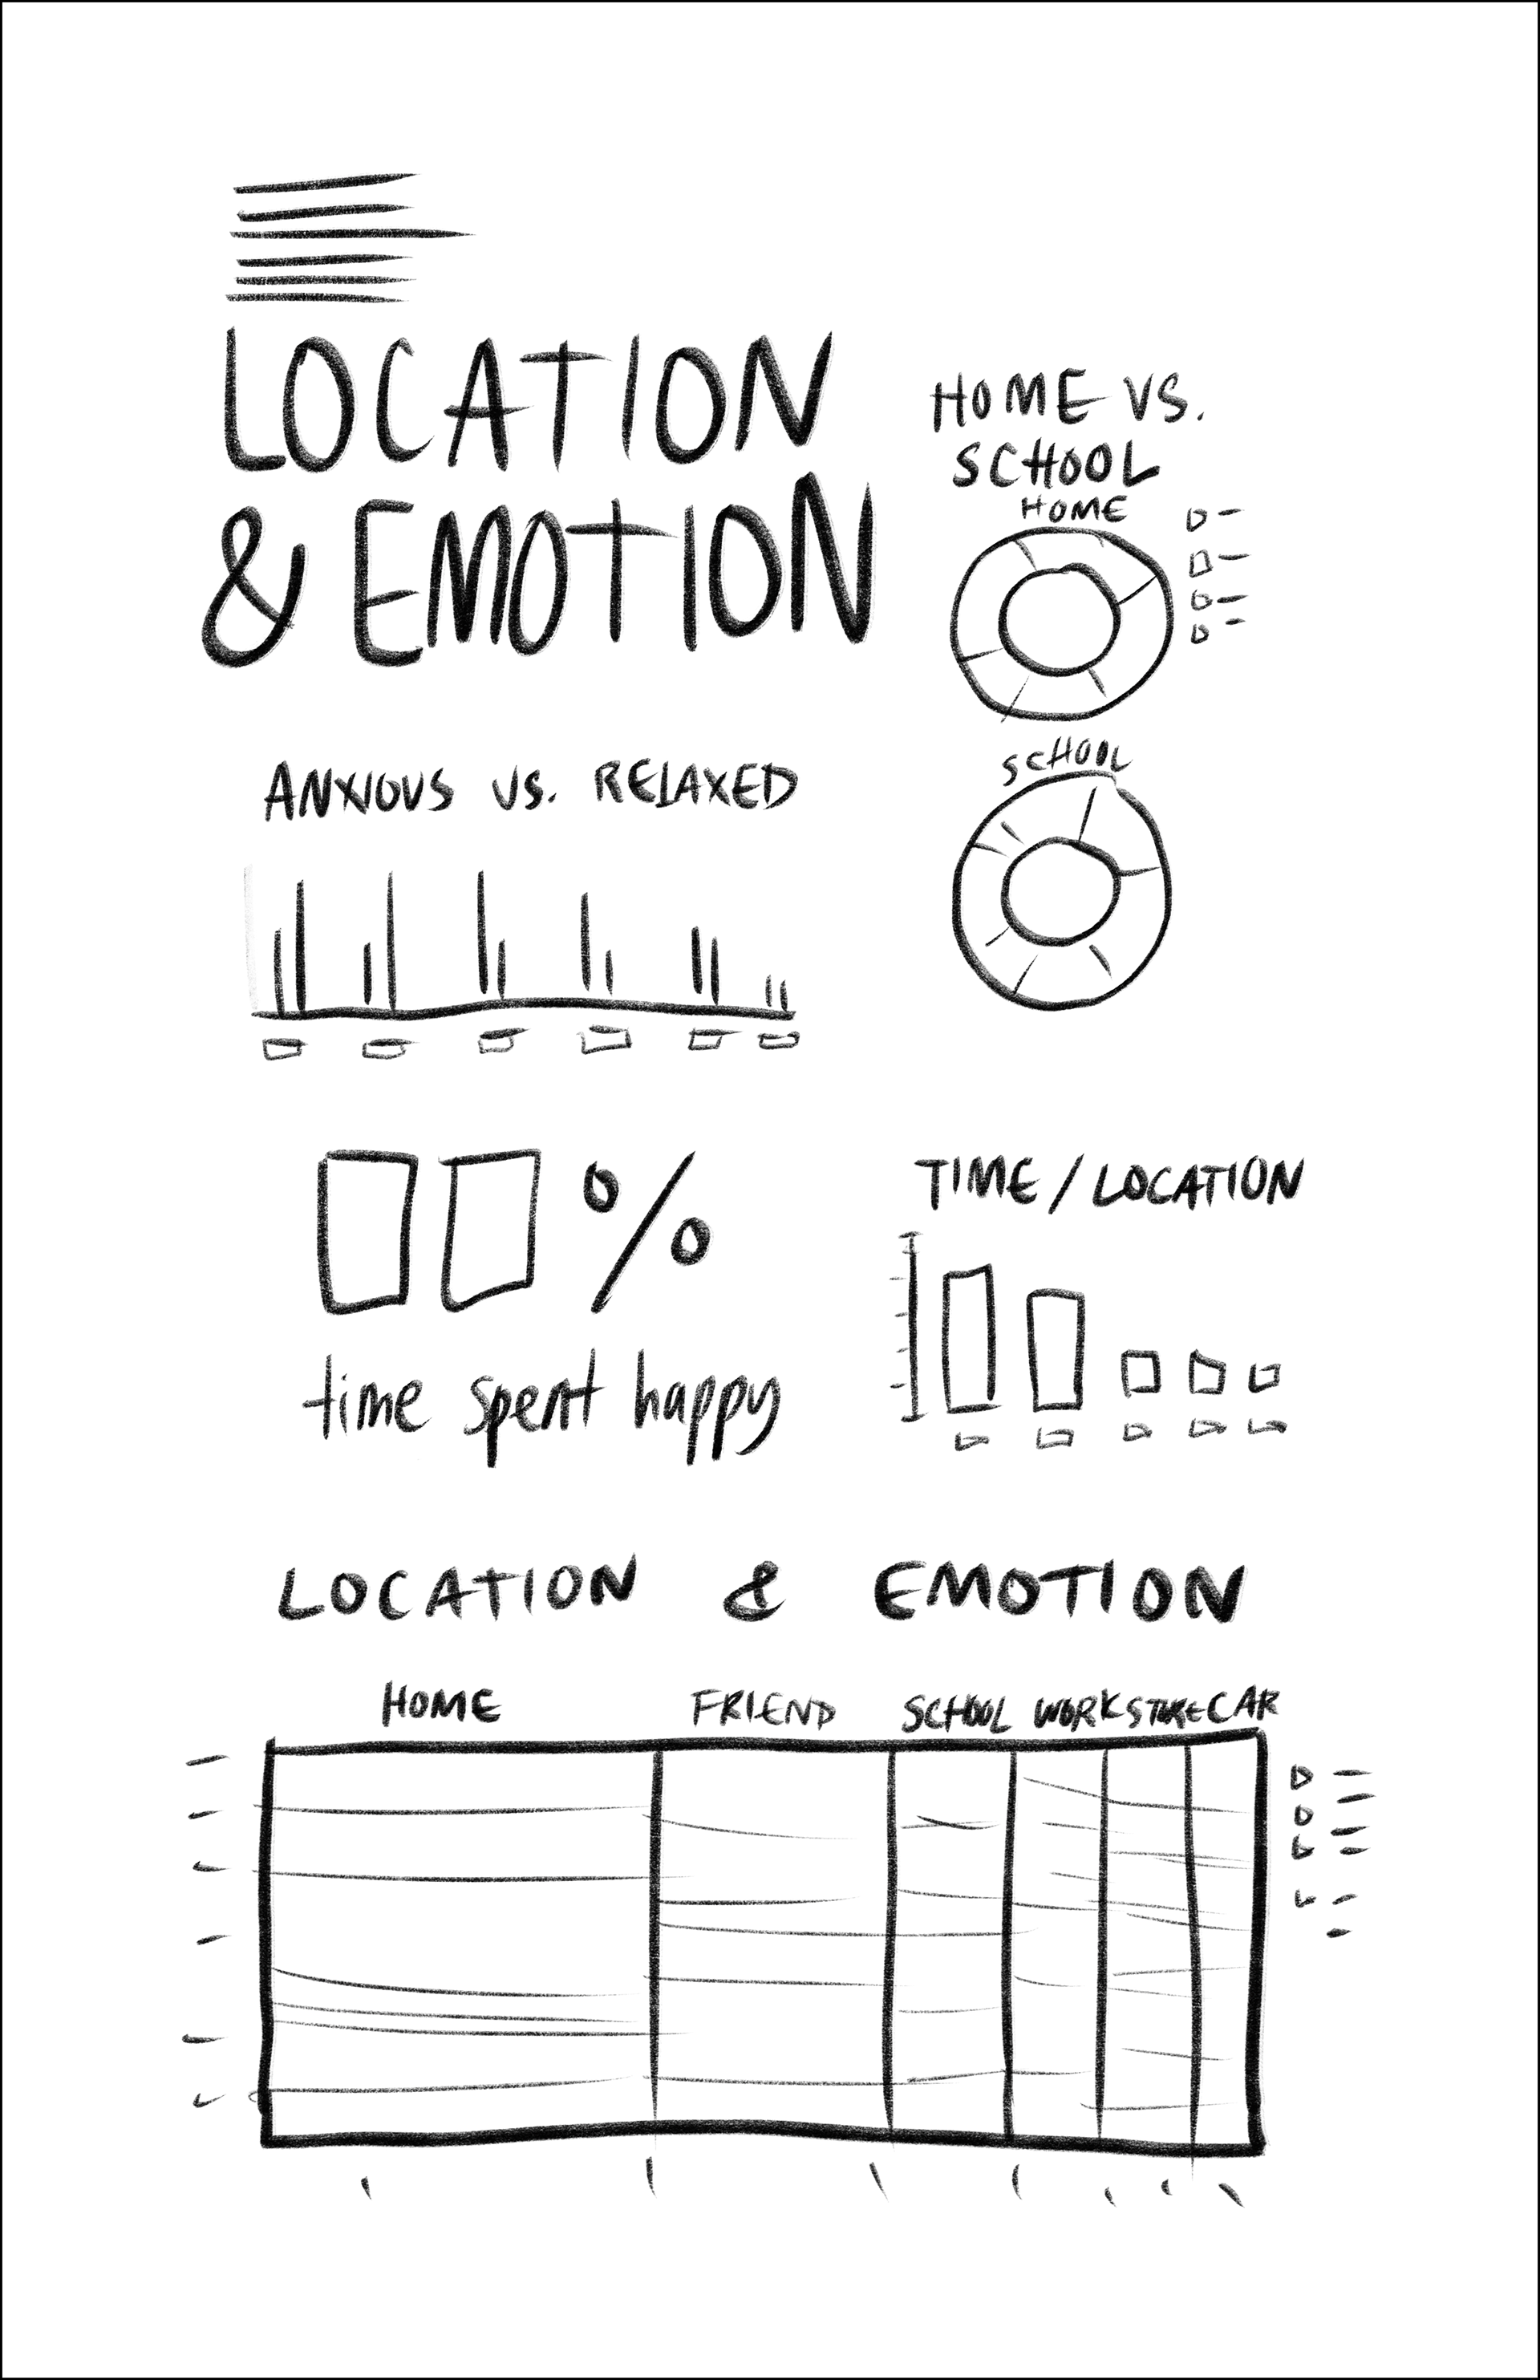 LOCATION
& EMOTION
HOME VS.
SCHOOL
HOME
SCHOOL
ANXIOUS VS. RELAXED
%
time spent happy
TIME/LOCATION
LOCATION & EMOTION
HOME FRIEND SCHOOL WORK STORE CAR